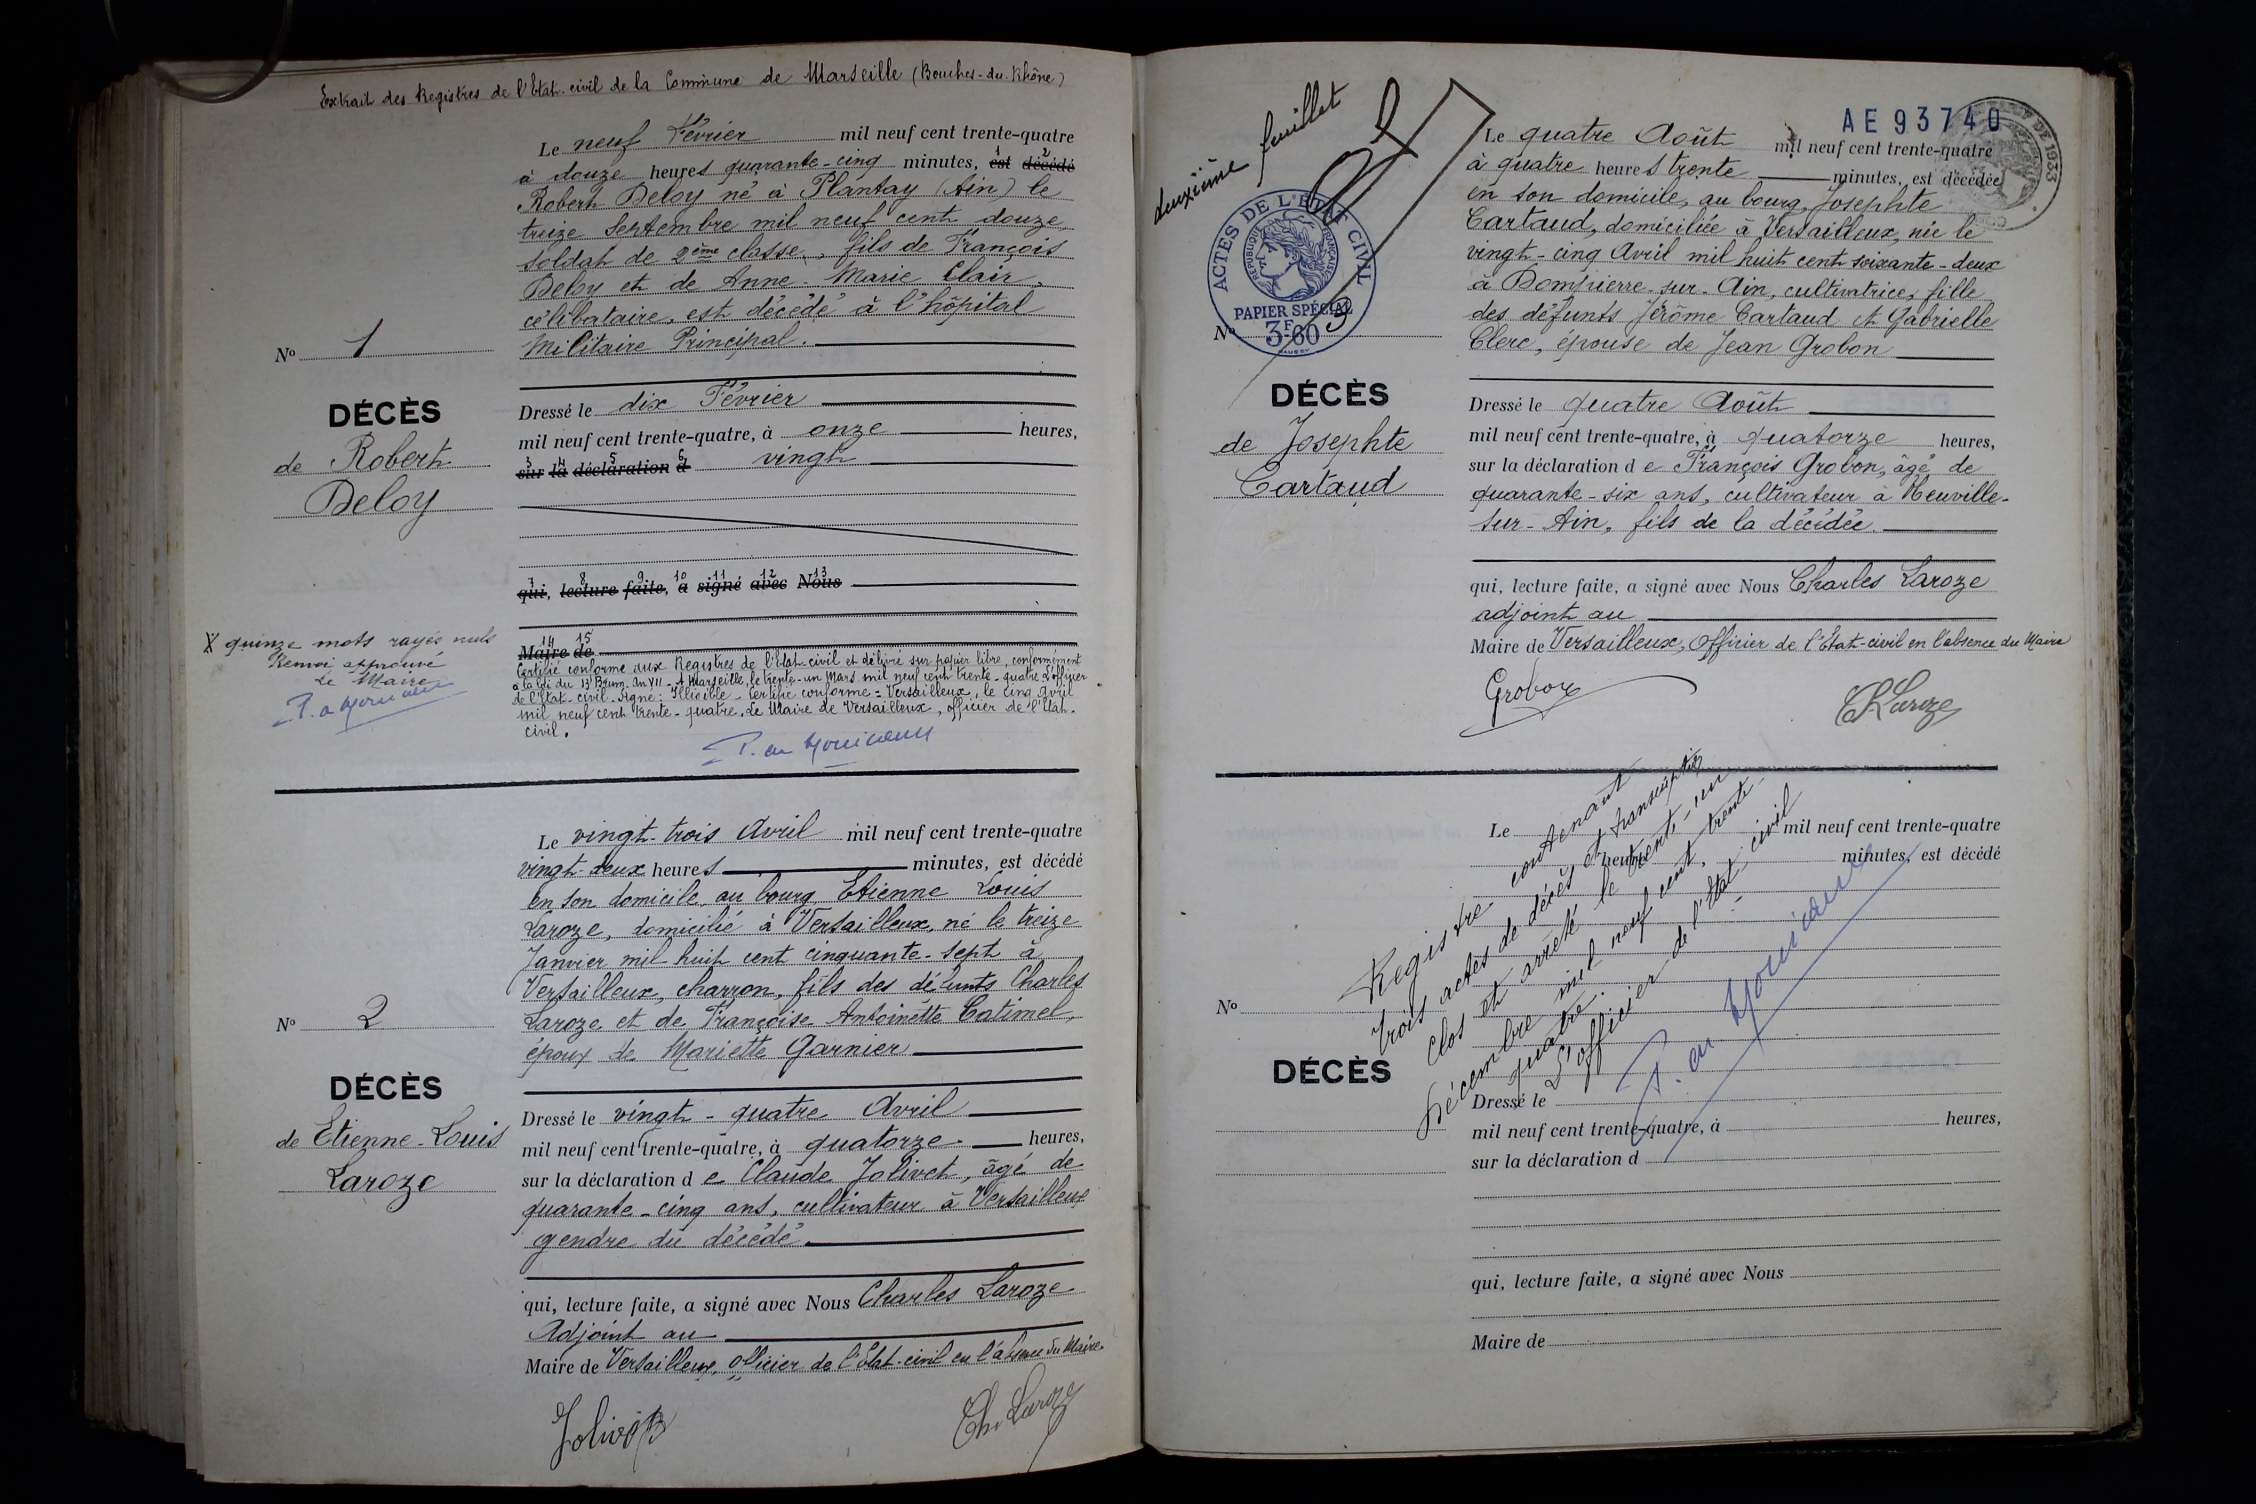 Extrait des Registres de l'Etat-civil de la Commune de Marseille (Bouches-du-Rhône)
Le neuf Février mil neuf cent trente-quatre
à douze heures quarante-cinq minutes, est décédé
Robert Deloy né à Plantay (Ain) le
treize Septembre mil neuf cent douze,
soldat de 2ème classe, fils de François
Deloy et de Anne-Marie Clair,
célibataire, est décédé à l'hôpital
Militaire Principal.
No 1
DÉCÈS
de Robert
Deloy
Dressé le dix Février
mil neuf cent trente-quatre, à onze heures,
sur la déclaration d vingt
qui, lecture faite, a signé avec Nous
Maire de
X quinze mots rayés nuls
Renvoi approuvé
Le Maire
Certifié conforme aux Registres de l'Etat-civil et délivré sur papier libre, conformément
à la loi du 13 Brum. An VII - A Marseille, le trente-un Mars mil neuf cent trente-quatre L'officier
de l'Etat-civil. Signé: Illisible - Certifié conforme = Versailleux, le cinq Avril
mil neuf cent trente-quatre. Le Maire de Versailleux, officier de l'Etat-
civil.
Le vingt-trois Avril mil neuf cent trente-quatre
vingt-deux heures minutes, est décédé
en son domicile au bourg Etienne Louis
Laroze, domicilié à Versailleux, né le treize
Janvier mil huit cent cinquante-sept à
Versailleux, charron, fils des défunts Charles
Laroze et de Françoise Antoinette Catimel,
époux de Mariette Garnier
No 2
DÉCÈS
de Etienne-Louis
Laroze
Dressé le vingt-quatre Avril
mil neuf cent trente-quatre, à quatorze heures,
sur la déclaration d e Claude Jolivet, âgé de
quarante-cinq ans, cultivateur à Versailleux
gendre du décédé.
qui, lecture faite, a signé avec Nous Charles Laroze
Adjoint au
Maire de Versailleux, officier de l'Etat-civil en l'absence du Maire.
Jolivet
Ch. Laroze
deuxième feuillet
AE 93740
ACTES DE L'ETAT CIVIL
REPUBLIQUE FRANÇAISE
PAPIER SPÉCIAL
3F60
DE 1933
Le quatre Août mil neuf cent trente-quatre
à quatre heures trente minutes, est décédée
en son domicile, au bourg, Josephte
Cartaud, domiciliée à Versailleux, née le
vingt-cinq Avril mil huit cent soixante-deux
à Dompierre-sur-Ain, cultivatrice, fille
des défunts Jérôme Cartaud et Gabrielle
Clerc, épouse de Jean Grobon
No 3
DÉCÈS
de Josephte
Cartaud
Dressé le quatre Août
mil neuf cent trente-quatre, à quatorze heures,
sur la déclaration d e François Grobon, âgé de
quarante-six ans, cultivateur à Neuville-
sur-Ain, fils de la décédée.
qui, lecture faite, a signé avec Nous Charles Laroze
adjoint au
Maire de Versailleux, Officier de l'Etat-civil en l'absence du Maire
Grobon
Ch Laroze
Le mil neuf cent trente-quatre
heure minutes, est décédé
Registre contenant
trois actes de décès et transcription
clos et arrêté le trente-un
Décembre mil neuf cent trente-
quatre.
L'officier de l'Etat civil
No
DÉCÈS
Dressé le
mil neuf cent trente-quatre, à heures,
sur la déclaration d
qui, lecture faite, a signé avec Nous
Maire de